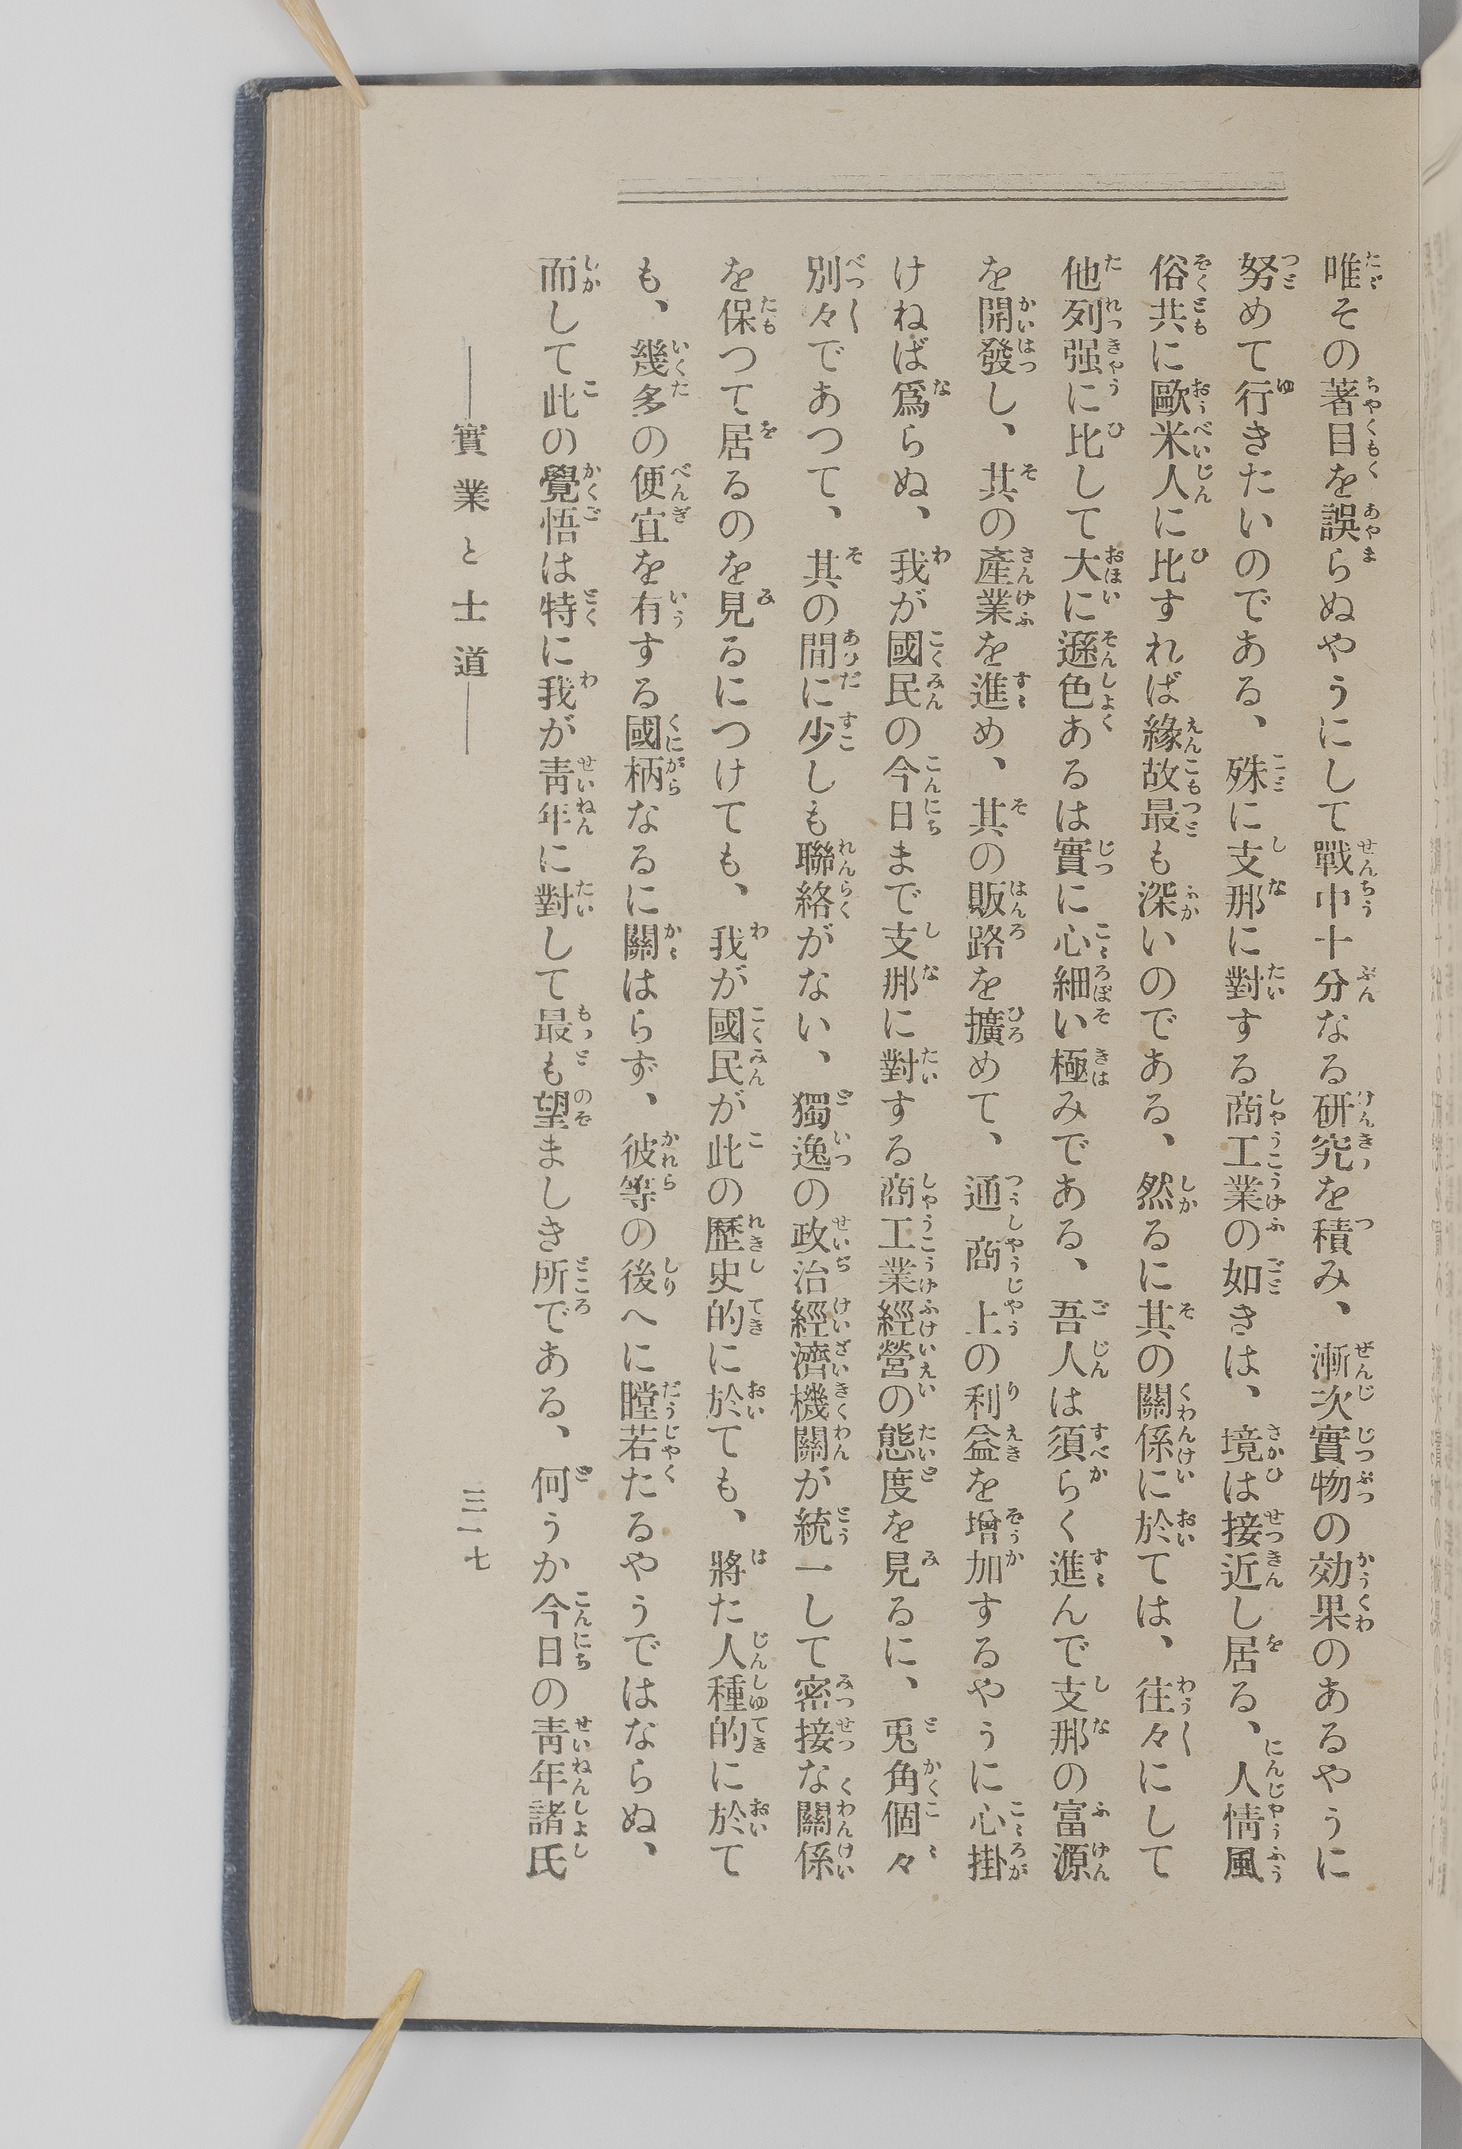 唯その著目を誤らぬやうにして戰中十分なる研究を積み、漸次實物の効果のあるやうに
努めて行きたいのである、殊に支那に對する商工業の如きは、境は接近し居る、人情風
俗共に歐米人に比すれば緣故最も深いのである、然るに其の關係に於ては、往々にして
他列强に比して大に遜色あるは實に心細い極みである、吾人は須らく進んで支那の富源
を開發し、其の產業を進め、其の販路を擴めて、通商上の利益を增加するやうに心掛
けねば爲らぬ、我が國民の今日まで支那に對する商工業經營の態度を見るに、兎角個々
別々であつて、其の間に少しも聯絡がない、獨逸の政治經濟機關が統一して密接な關係
を保つて居るのを見るにつけても、我が國民が此の歷史的に於ても、將た人種的に於て
も、幾多の便宜を有する國柄なるに關はらず、彼等の後へに瞠若たるやうではならぬ、
而して此の覺悟は特に我が靑年に對して最も望ましき所である、何うか今日の靑年諸氏
――實業と士道――
三一七